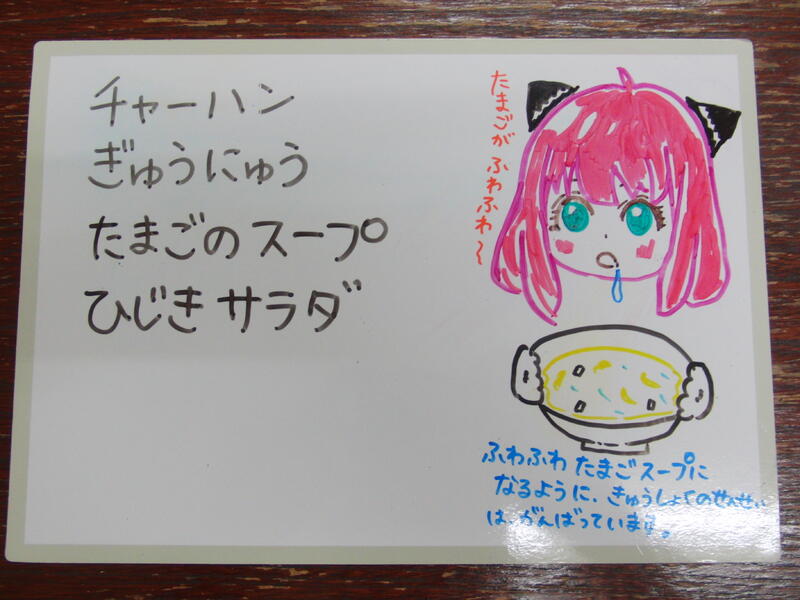 チャーハン
ぎゅうにゅう
たまごのスープ
ひじきサラダ
たまごがふわふわ～
ふわふわたまごスープに
なるように、きゅうしょくのせんせい
は、がんばっています。